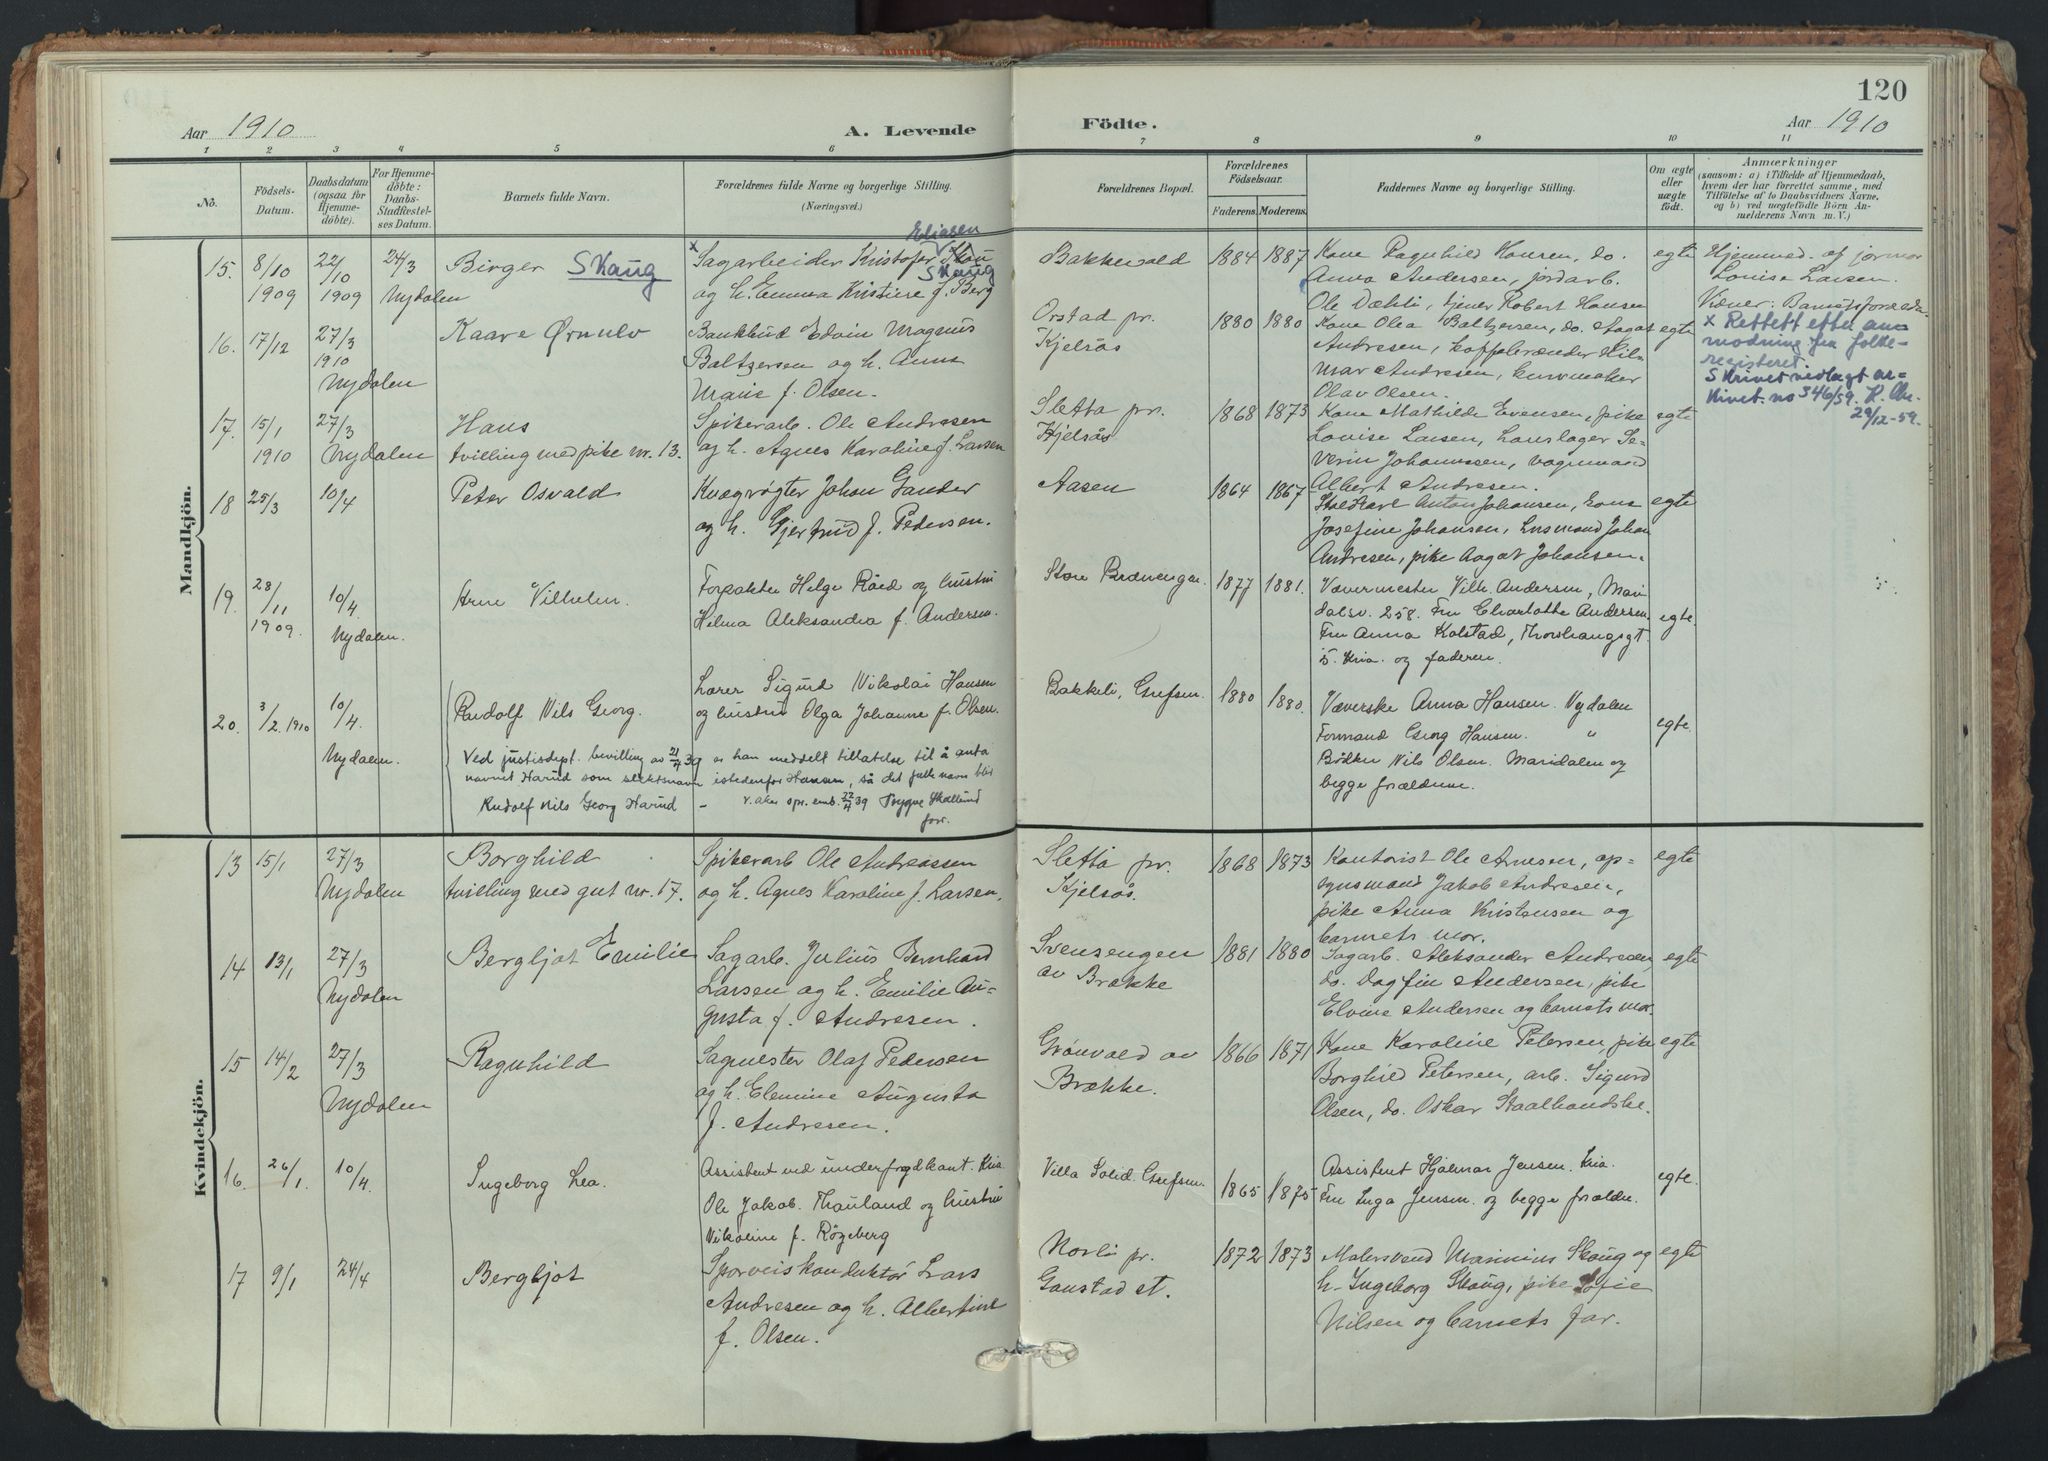 120
Aar 1910
A. Levende
Födte.
Aar 1910
1 2 3 4 5 6 7 8 9 10 11
No.
Födsels-Datum.
Daabsdatum (ogsaa for Hjemmedöbte).
For Hjemmedöbte: Daabs-Stadfæstelses Datum.
Barnets fulde Navn.
Forældrenes fulde Navne og borgerlige Stilling.
(Næringsvei.)
Forældrenes Bopæl.
Forældrenes Födselsaar.
Faderens. Moderens.
Faddernes Navne og borgerlige Stilling.
Om ægte eller uægte födt.
Anmærkninger
(saasom: a) i Tilfælde af Hjemmedaab, hvem der har forrettet samme, med Tilföielse af to Daabsvidners Navne, og b) ved uægtefödte Börn Anmelderens Navn m. V.)
Mandkjön.
15. 8/10 1909
22/10 1909
24/3 Nydalen
Birger Skaug
Eliasen
x Sagarbeider Kristofer
Skaug
og h. Emma Kristine f. Berg
Bakkevold
1884 1887
Kone Ragnhild Hansen, do.
Anna Andersen, jordarb.
Ole Dæhli, tjener Robert Hansen
egte
Hjemmed. af jormor
Louise Larsen.
Vidner: Barnets forældre
x Rettet efter an-
modning fra folke-
registeret.
Skrivet vedlagt ar-
kivet. no 346/59.
29/12-59.
16. 17/12
27/3 1910 Nydalen
Kaare Ørnulv
Bankbud Edvin Magnus
Baltzersen og h. Anna
Marie f. Olsen.
Orstad pr.
Kjelsås
1880 1880
Kone Olea Baltzersen, do. Aagot
Andresen, Hil-
mar Andresen, kurvmaker
Olav Olsen.
egte
17. 15/1 1910
27/3 Nydalen
Hans
tvilling med pike nr. 13.
Spikerarb. Ole Andresen
og h. Agnes Karoline f. Larsen
Sletta pr.
Kjelsås
1868 1873
Kone Mathilde Evensen, pike
Lovise Larsen, Se-
verin Johannesen, vognmand
Albert Andresen.
egte
18 25/3
10/4
Peter Osvald
Kvægrøgter Johan Gander
og h. Gjertrud f. Pedersen.
Aasen
1864 1867
Staldkarl Anton Johansen, kone
Josefine Johansen, Johan
Andresen, pike Aagot Johansen.
egte
19. 28/11 1909.
10/4 Nydalen.
Arne Vilhelm.
Forpakter Helge Råed og hustru
Helma Aleksandra f. Andersen.
Store
1877 1881.
Værmester Vilh. Andersen, Mari
dalsv. 258. Fru Charlotte Andersen
Fru Anna Kolstad, Thorshaugsgt
5. Kria. og faderen.
egte.
20. 3/2 1910
10/4. Nydalen.
Rudolf Nils Georg.
Lærer Sigurd Nikolai Hansen
og hustru Olga Johanne f. Olsen.
Bakkeli, Grefsen.
1880 1880.
Væverske Anna Hansen. Nydalen
Formand Georg Hansen. "
Bödker Nils Olsen. Maridalen og
begge forældrene.
egte.
Ved justisdept. bevilling av 21/4 39 er han meddelt tillatelse til å anta
navnet Harud som slektsnavn istedenfor Hansen, så det fulle navn blir
Rudolf Nils Georg Harud – V. aker spr. emb. 22/4 39 Trygve
Kvindekjön.
13 15/1
27/3 Nydalen
Borghild
tvilling med gut nr. 17.
Spikerarb Ole Andreassen
og h. Agnes Karoline f. Larsen.
Sletta pr.
Kjelsås.
1868 1873
Kontorist Ole Arnesen, op-
synsmand Jakob Andresen,
pike Anna Kristensen og
barnets mor.
egte
14 13/1
27/3 Nydalen
Bergljot Emilie
Sagarb. Julius Bernhard
Larsen og h. Emilie Au-
gusta f. Andresen.
Svensengen
av Brække
1881 1880
Sagarb. Aleksander Andresen,
do. Dagfin Andersen, pike
Elvine Andersen og barnets mor.
egte
15 14/2
27/3 Nydalen
Ragnhild
Sagmester Olaf Pedersen
og h. Elenine Augusta
f. Andresen.
Grönvold av
Brække.
1866 1871
Kone Karoline Petersen, pike
Borghild Petersen, arb. Sigurd
Olsen, do. Oskar Staalhandske.
egte
16. 26/1
10/4.
Ingeborg Lea.
Assistent ved Kria.
Ole Jakob Thauland og hustru
Nikoline f. Rögeberg
Villa Solid. Grefsen.
1865 1875
Assistent Hjalmar Jensen. Kria.
Fru Inga Jensen. og begge foreldre.
egte.
17 9/1
24/4
Bergljot
Sporveiskonduktör Lars
Andresen og h. Albertine
f. Olsen.
Norli pr.
Gaustad st.
1872 1873
Malersvend Marinius Skoug og
h. Ingeborg Skoug, pike Sofie
Nilsen og barnets far.
egte